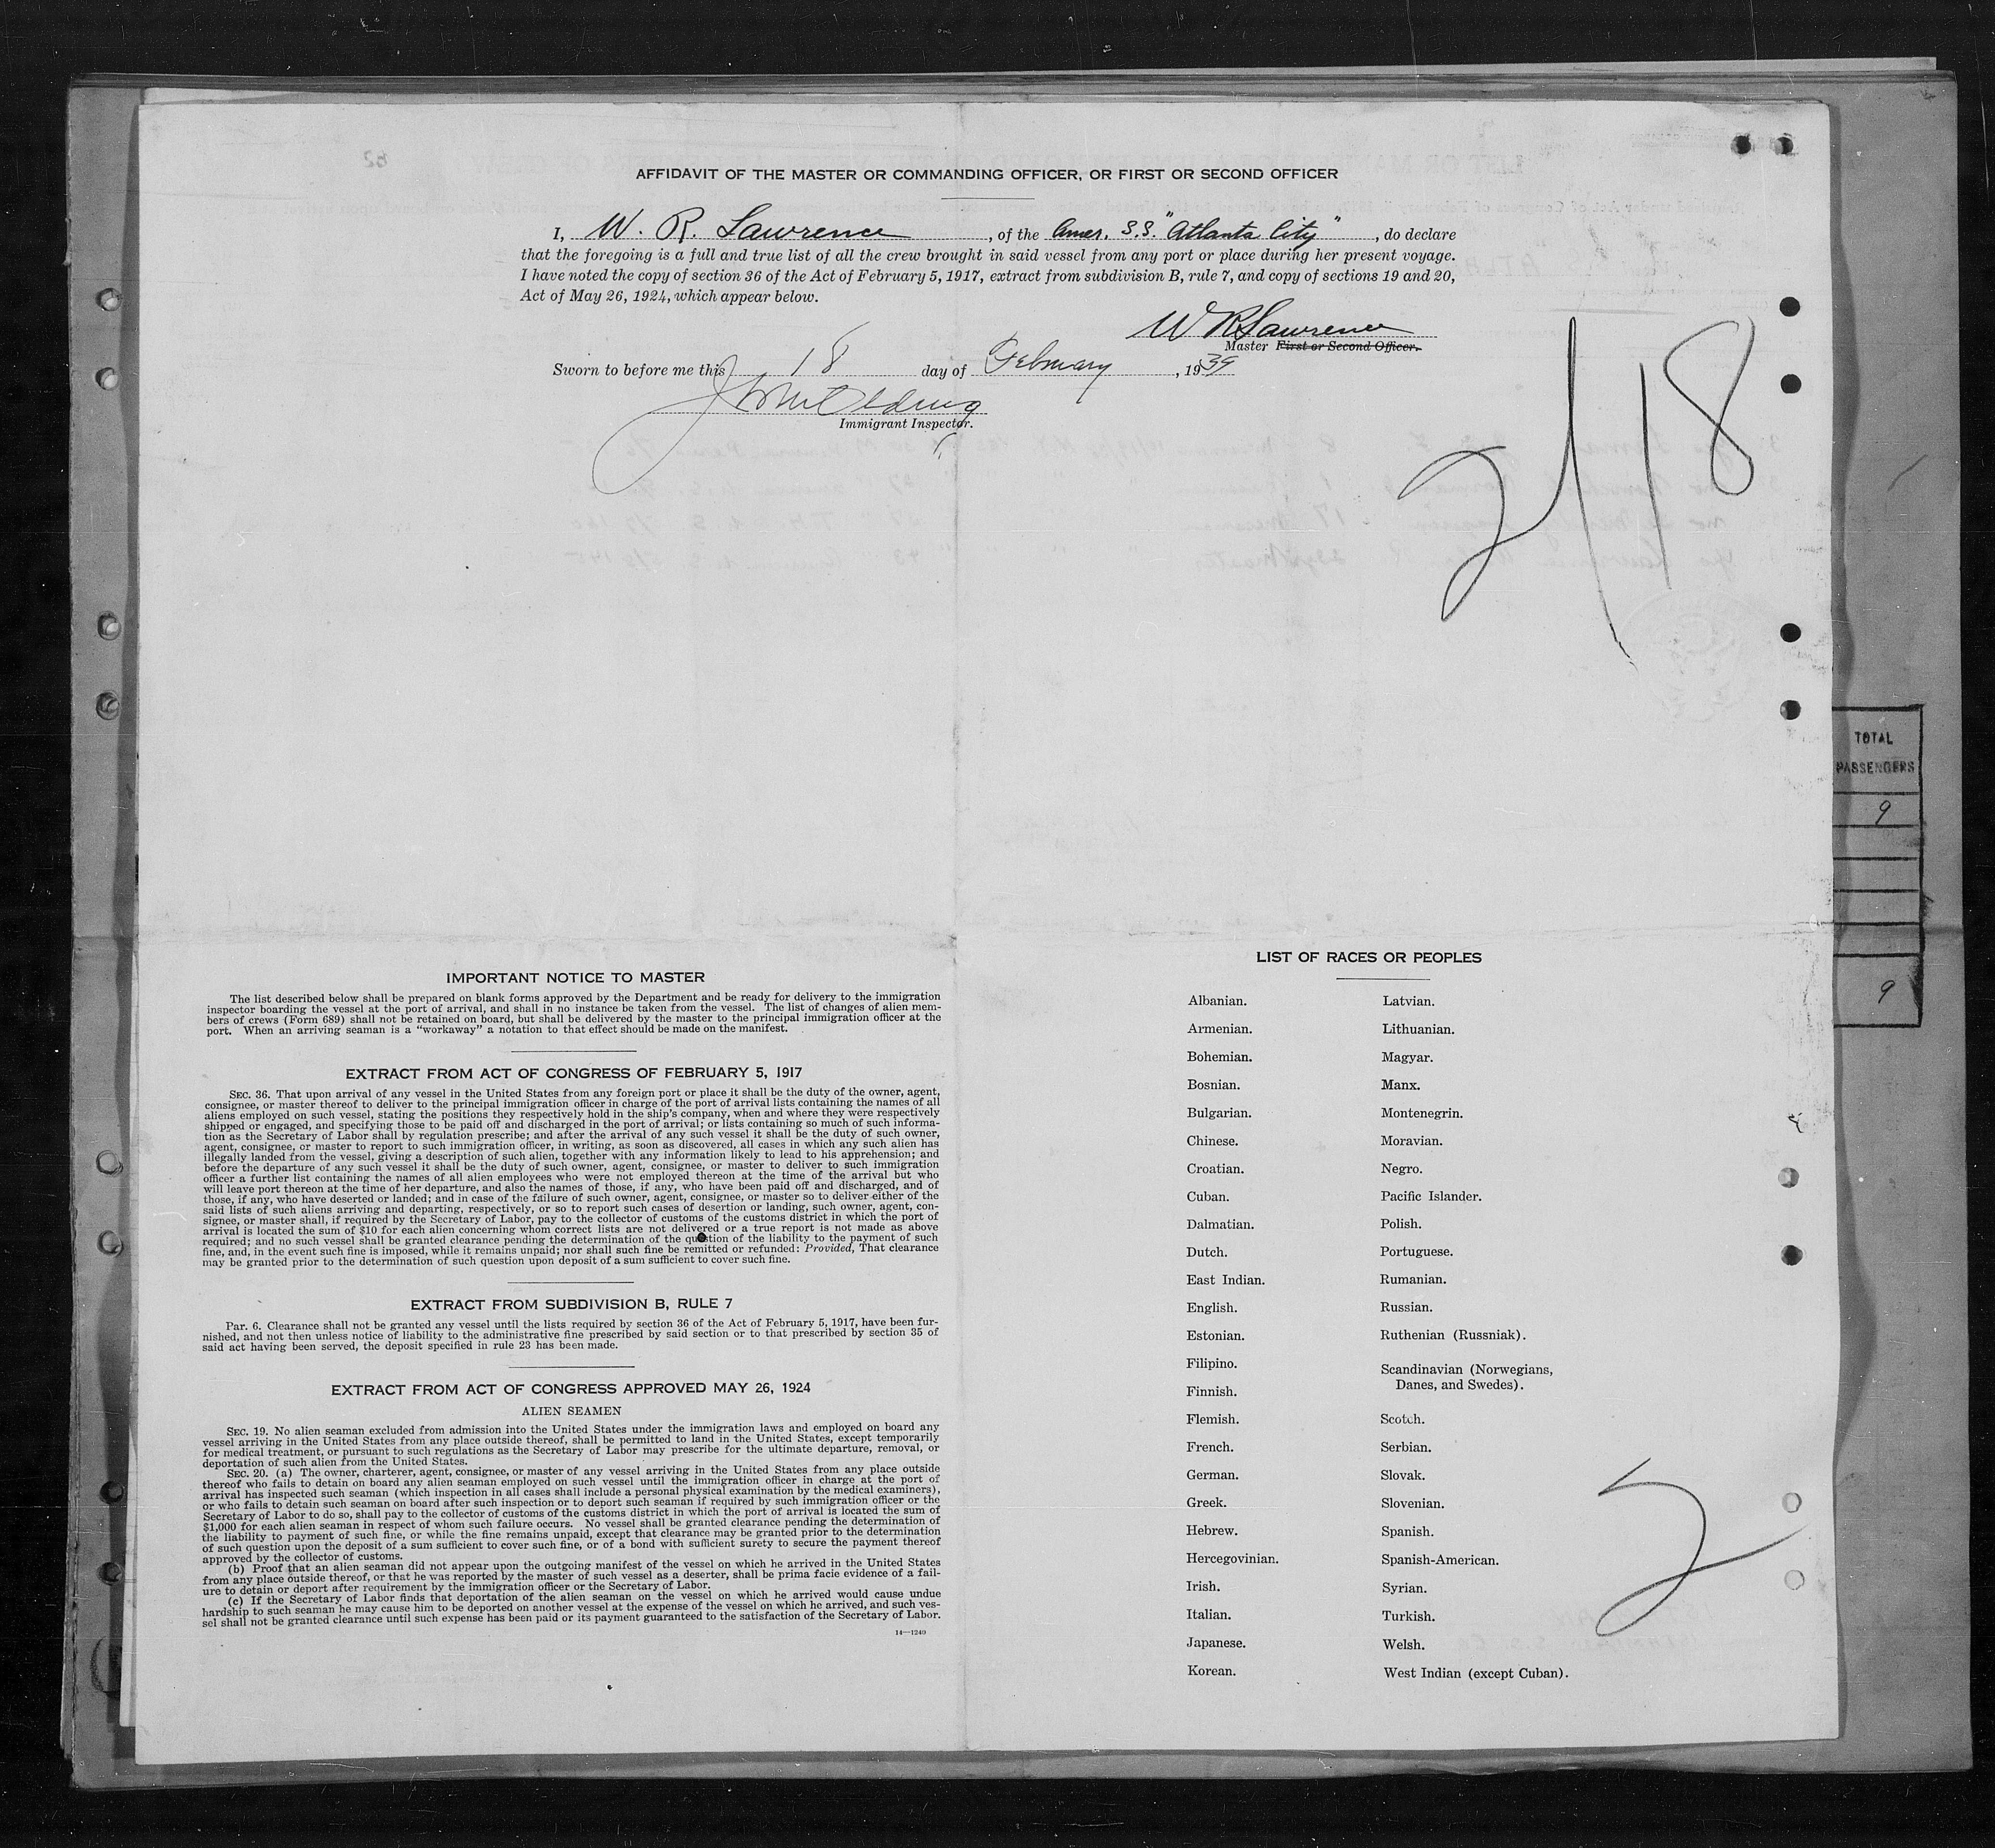 AFFIDAVIT OF THE MASTER OR COMMANDING OFFICER, OR FIRST OR SECOND OFFICER
I, W. R. Lawrence, of the Amer. S.S. "Atlanta City", do declare
that the foregoing is a full and true list of all the crew brought in said vessel from any port or place during her present voyage.
I have noted the copy of section 36 of the Act of February 5, 1917, extract from subdivision B, rule 7, and copy of sections 19 and 20,
Act of May 26, 1924, which appear below.
W R Lawrence
Master First or Second Officer.
Sworn to before me this 18 day of February, 1939
Immigrant Inspector.
2/18
TOTAL
PASSENGERS
9
9
IMPORTANT NOTICE TO MASTER
The list described below shall be prepared on blank forms approved by the Department and be ready for delivery to the immigration
inspector boarding the vessel at the port of arrival, and shall in no instance be taken from the vessel. The list of changes of alien mem-
bers of crews (Form 689) shall not be retained on board, but shall be delivered by the master to the principal immigration officer at the
port. When an arriving seaman is a "workaway" a notation to that effect should be made on the manifest.
EXTRACT FROM ACT OF CONGRESS OF FEBRUARY 5, 1917
SEC. 36. That upon arrival of any vessel in the United States from any foreign port or place it shall be the duty of the owner, agent,
consignee, or master thereof to deliver to the principal immigration officer in charge of the port of arrival lists containing the names of all
aliens employed on such vessel, stating the positions they respectively hold in the ship's company, when and where they were respectively
shipped or engaged, and specifying those to be paid off and discharged in the port of arrival; or lists containing so much of such informa-
tion as the Secretary of Labor shall by regulation prescribe; and after the arrival of any such vessel it shall be the duty of such owner,
agent, consignee, or master to report to such immigration officer, in writing, as soon as discovered, all cases in which any such alien has
illegally landed from the vessel, giving a description of such alien, together with any information likely to lead to his apprehension; and
before the departure of any such vessel it shall be the duty of such owner, agent, consignee, or master to deliver to such immigration
officer a further list containing the names of all alien employees who were not employed thereon at the time of the arrival but who
will leave port thereon at the time of her departure, and also the names of those, if any, who have been paid off and discharged, and of
those, if any, who have deserted or landed; and in case of the failure of such owner, agent, consignee, or master so to deliver either of the
said lists of such aliens arriving and departing, respectively, or so to report such cases of desertion or landing, such owner, agent, con-
signee, or master shall, if required by the Secretary of Labor, pay to the collector of customs of the customs district in which the port of
arrival is located the sum of $10 for each alien concerning whom correct lists are not delivered or a true report is not made as above
required; and no such vessel shall be granted clearance pending the determination of the question of the liability to the payment of such
fine, and, in the event such fine is imposed, while it remains unpaid; nor shall such fine be remitted or refunded: Provided, That clearance
may be granted prior to the determination of such question upon deposit of a sum sufficient to cover such fine.
EXTRACT FROM SUBDIVISION B, RULE 7
Par. 6. Clearance shall not be granted any vessel until the lists required by section 36 of the Act of February 5, 1917, have been fur-
nished, and not then unless notice of liability to the administrative fine prescribed by said section or to that prescribed by section 35 of
said act having been served, the deposit specified in rule 23 has been made.
EXTRACT FROM ACT OF CONGRESS APPROVED MAY 26, 1924
ALIEN SEAMEN
SEC. 19. No alien seaman excluded from admission into the United States under the immigration laws and employed on board any
vessel arriving in the United States from any place outside thereof, shall be permitted to land in the United States, except temporarily
for medical treatment, or pursuant to such regulations as the Secretary of Labor may prescribe for the ultimate departure, removal, or
deportation of such alien from the United States.
SEC. 20. (a) The owner, charterer, agent, consignee, or master of any vessel arriving in the United States from any place outside
thereof who fails to detain on board any alien seaman employed on such vessel until the immigration officer in charge at the port of
arrival has inspected such seaman (which inspection in all cases shall include a personal physical examination by the medical examiners),
or who fails to detain such seaman on board after such inspection or to deport such seaman if required by such immigration officer or the
Secretary of Labor to do so, shall pay to the collector of customs of the customs district in which the port of arrival is located the sum of
$1,000 for each alien seaman in respect of whom such failure occurs. No vessel shall be granted clearance pending the determination of
the liability to payment of such fine, or while the fine remains unpaid, except that clearance may be granted prior to the determination
of such question upon the deposit of a sum sufficient to cover such fine, or of a bond with sufficient surety to secure the payment thereof
approved by the collector of customs.
(b) Proof that an alien seaman did not appear upon the outgoing manifest of the vessel on which he arrived in the United States
from any place outside thereof, or that he was reported by the master of such vessel as a deserter, shall be prima facie evidence of a fail-
ure to detain or deport after requirement by the immigration officer or the Secretary of Labor.
(c) If the Secretary of Labor finds that deportation of the alien seaman on the vessel on which he arrived would cause undue
hardship to such seaman he may cause him to be deported on another vessel at the expense of the vessel on which he arrived, and such ves-
sel shall not be granted clearance until such expense has been paid or its payment guaranteed to the satisfaction of the Secretary of Labor.
14—1240
LIST OF RACES OR PEOPLES
Albanian.
Armenian.
Bohemian.
Bosnian.
Bulgarian.
Chinese.
Croatian.
Cuban.
Dalmatian.
Dutch.
East Indian.
English.
Estonian.
Filipino.
Finnish.
Flemish.
French.
German.
Greek.
Hebrew.
Hercegovinian.
Irish.
Italian.
Japanese.
Korean.
Latvian.
Lithuanian.
Magyar.
Manx.
Montenegrin.
Moravian.
Negro.
Pacific Islander.
Polish.
Portuguese.
Rumanian.
Russian.
Ruthenian (Russniak).
Scandinavian (Norwegians,
Danes, and Swedes).
Scotch.
Serbian.
Slovak.
Slovenian.
Spanish.
Spanish-American.
Syrian.
Turkish.
Welsh.
West Indian (except Cuban).
2